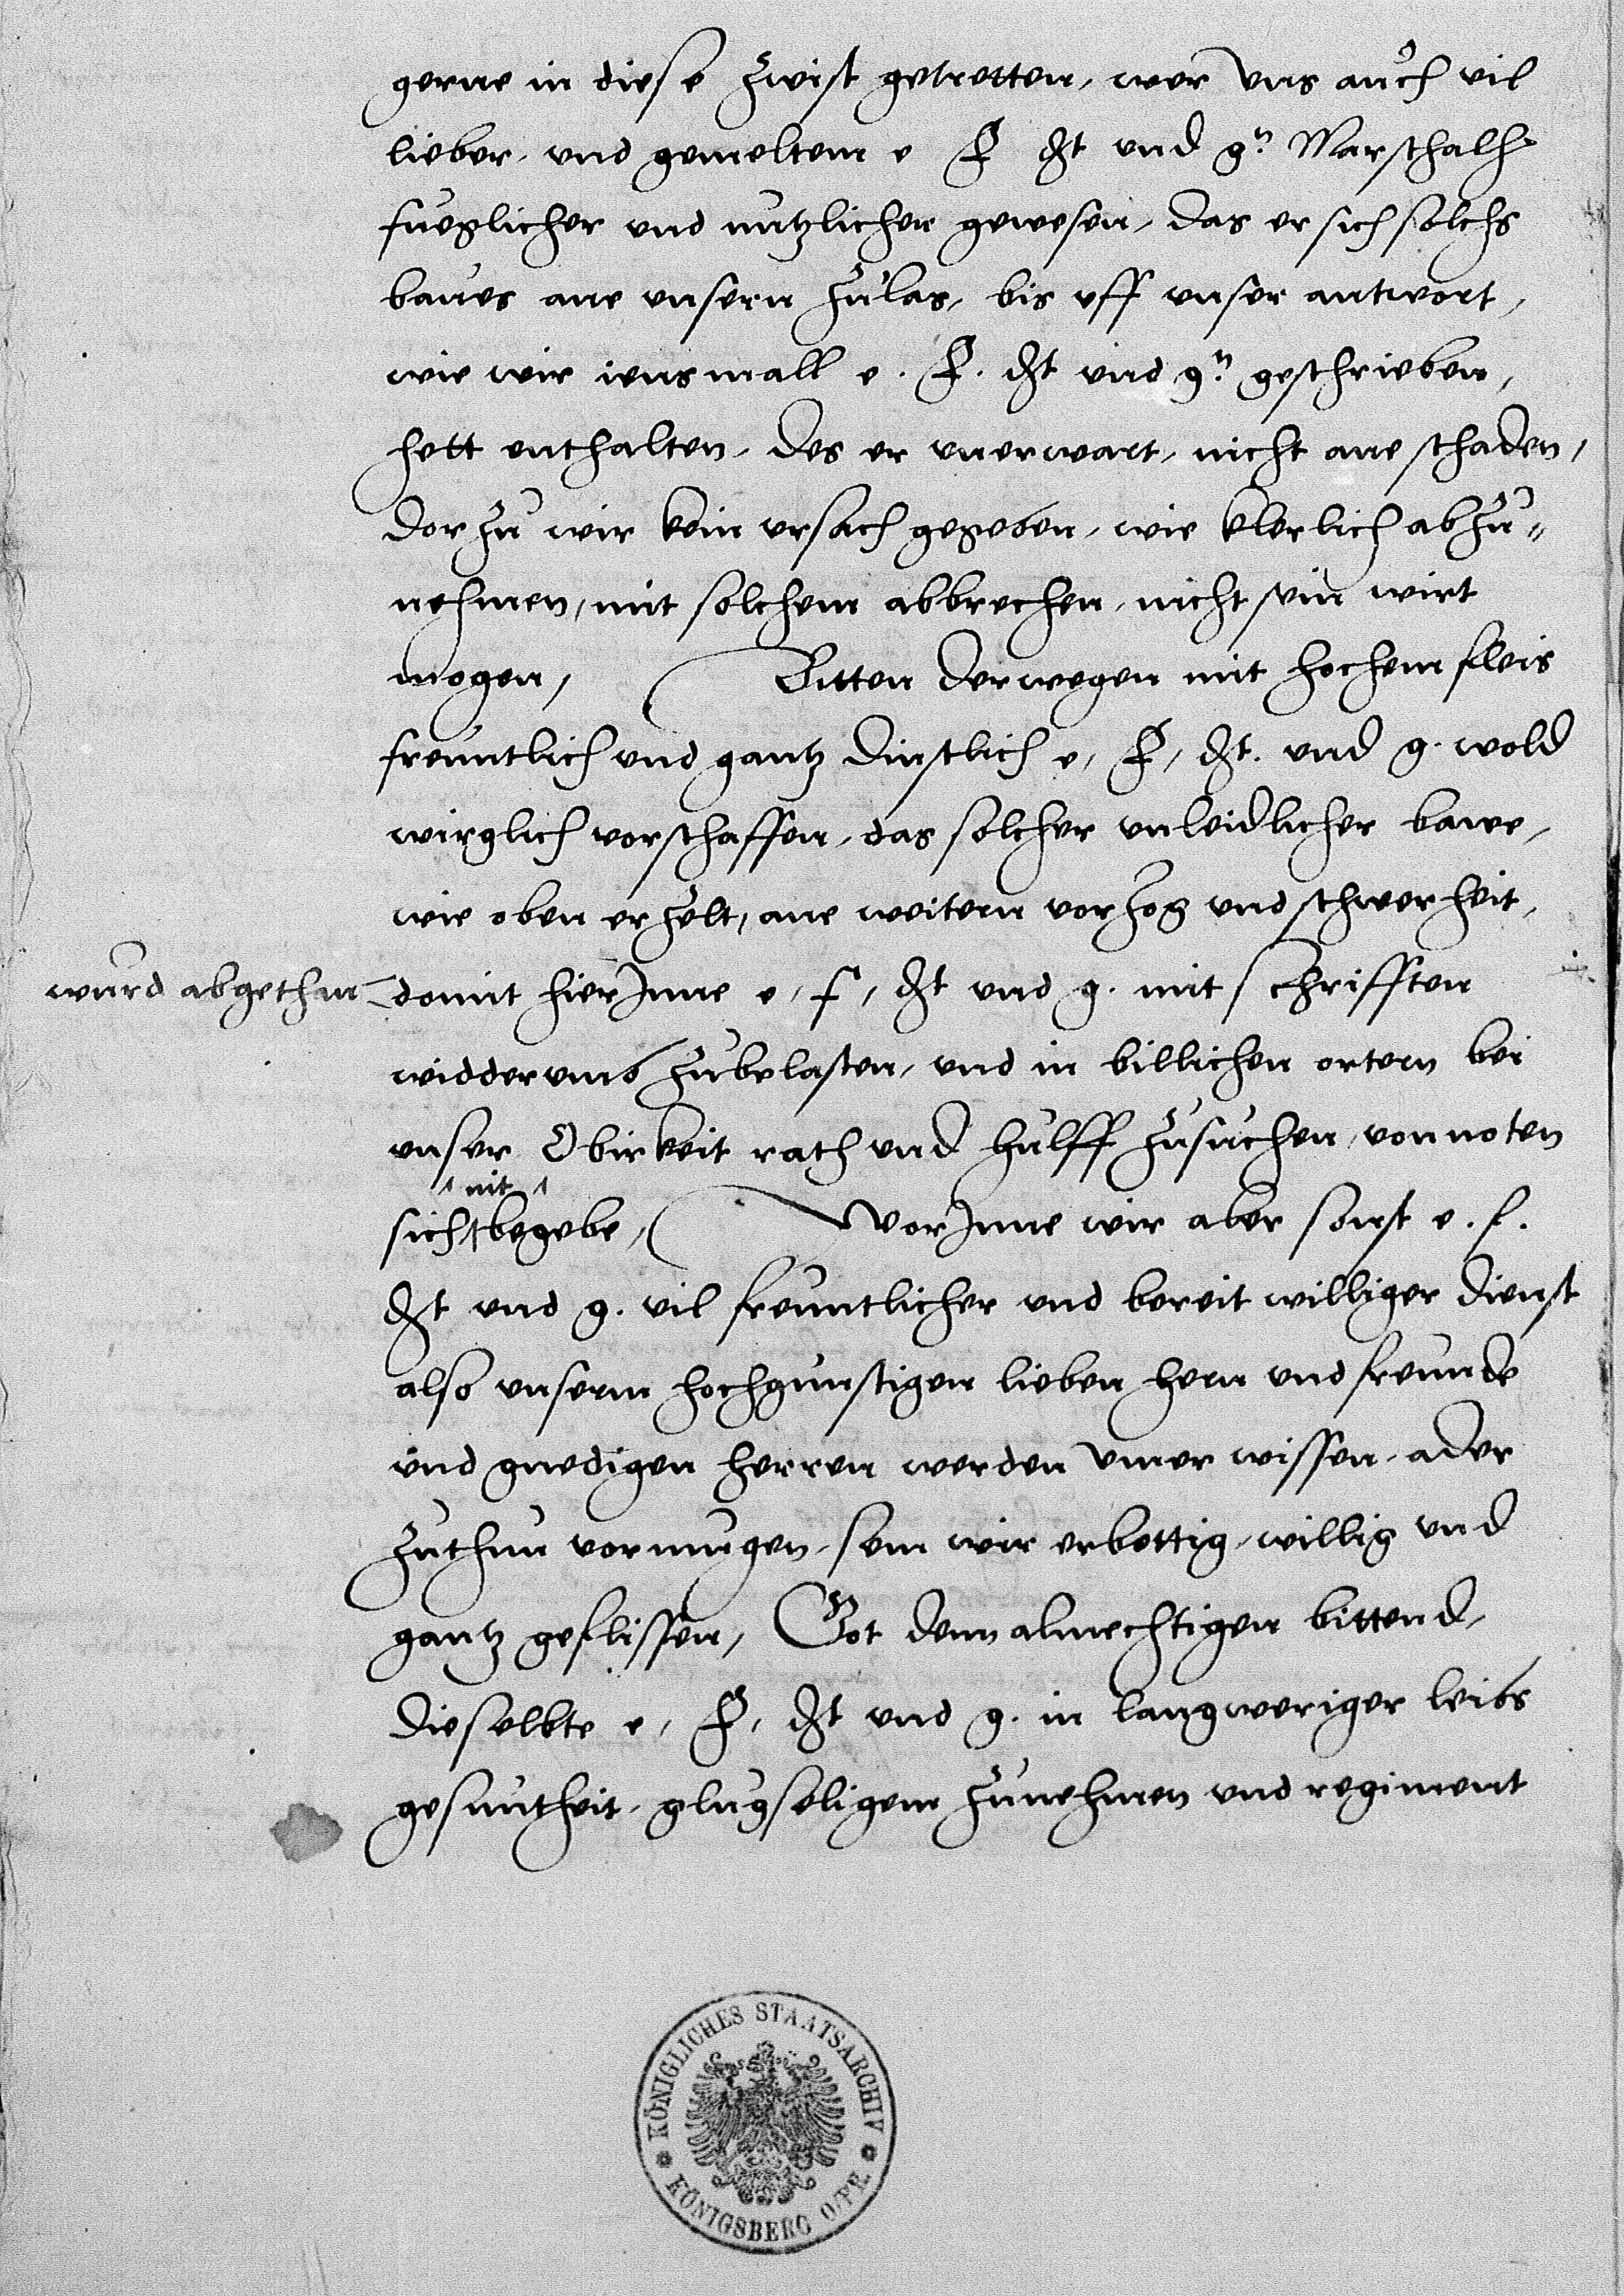 gerne in diese zwist getretten, wer vns auch vil
lieber, vnd gemeltem e F dt vnd gn Marschalh
fueglicher vnd nutzlicher gewesen, das er sich solchs
baues ane vnsern zulas, bis vff vnser antwort,
wie wir iensmall e. F. dt vnd gn geschrieben,
hett enthalten, des er vnerwart, nicht ane schaden,
dor zu wir kein vrsach gegeben, wie klerlich abzu„
nehmen, mit solchem abbrechen, nicht sein wirt
mogen, Bitten derwegen mit hochem fleis
freuntlich vnd gantz dinstlich e, F, dt. vnd g. wold
wirglich vorschaffen, das solcher vnleidlicher bawe,
wie oben erzelt, ane weitern vorzog vnd schwerheit,
wurd abgethan domit hierInne e, f, dt vnd g. mit schrifften
widderumb zubelasten, vnd in billichen ortern bei
vnser Obirkeit rath vnd hulff zusuchen, vonnoten
nit
sich begebe, WorInne wir aber sonst e. f.
dt vnd g. vil freuntlicher vnd bereit williger dienst
also vnserm hochgunstigen lieben hern vnd freunde
vnd gnedigen herren werden vmer wissen, ader
zuthun vormugen, sein wir erbottig, willig vnd
gantz geflissen, Got dem almechtigen bittend,
dieselbte e, F, dt vnd g. in langweriger leibs
gesuntheit, glugseligem zunehmen vnd regiment
KÖNIGLICHES STAATSARCHIV
KÖNIGSBERG O/PR.